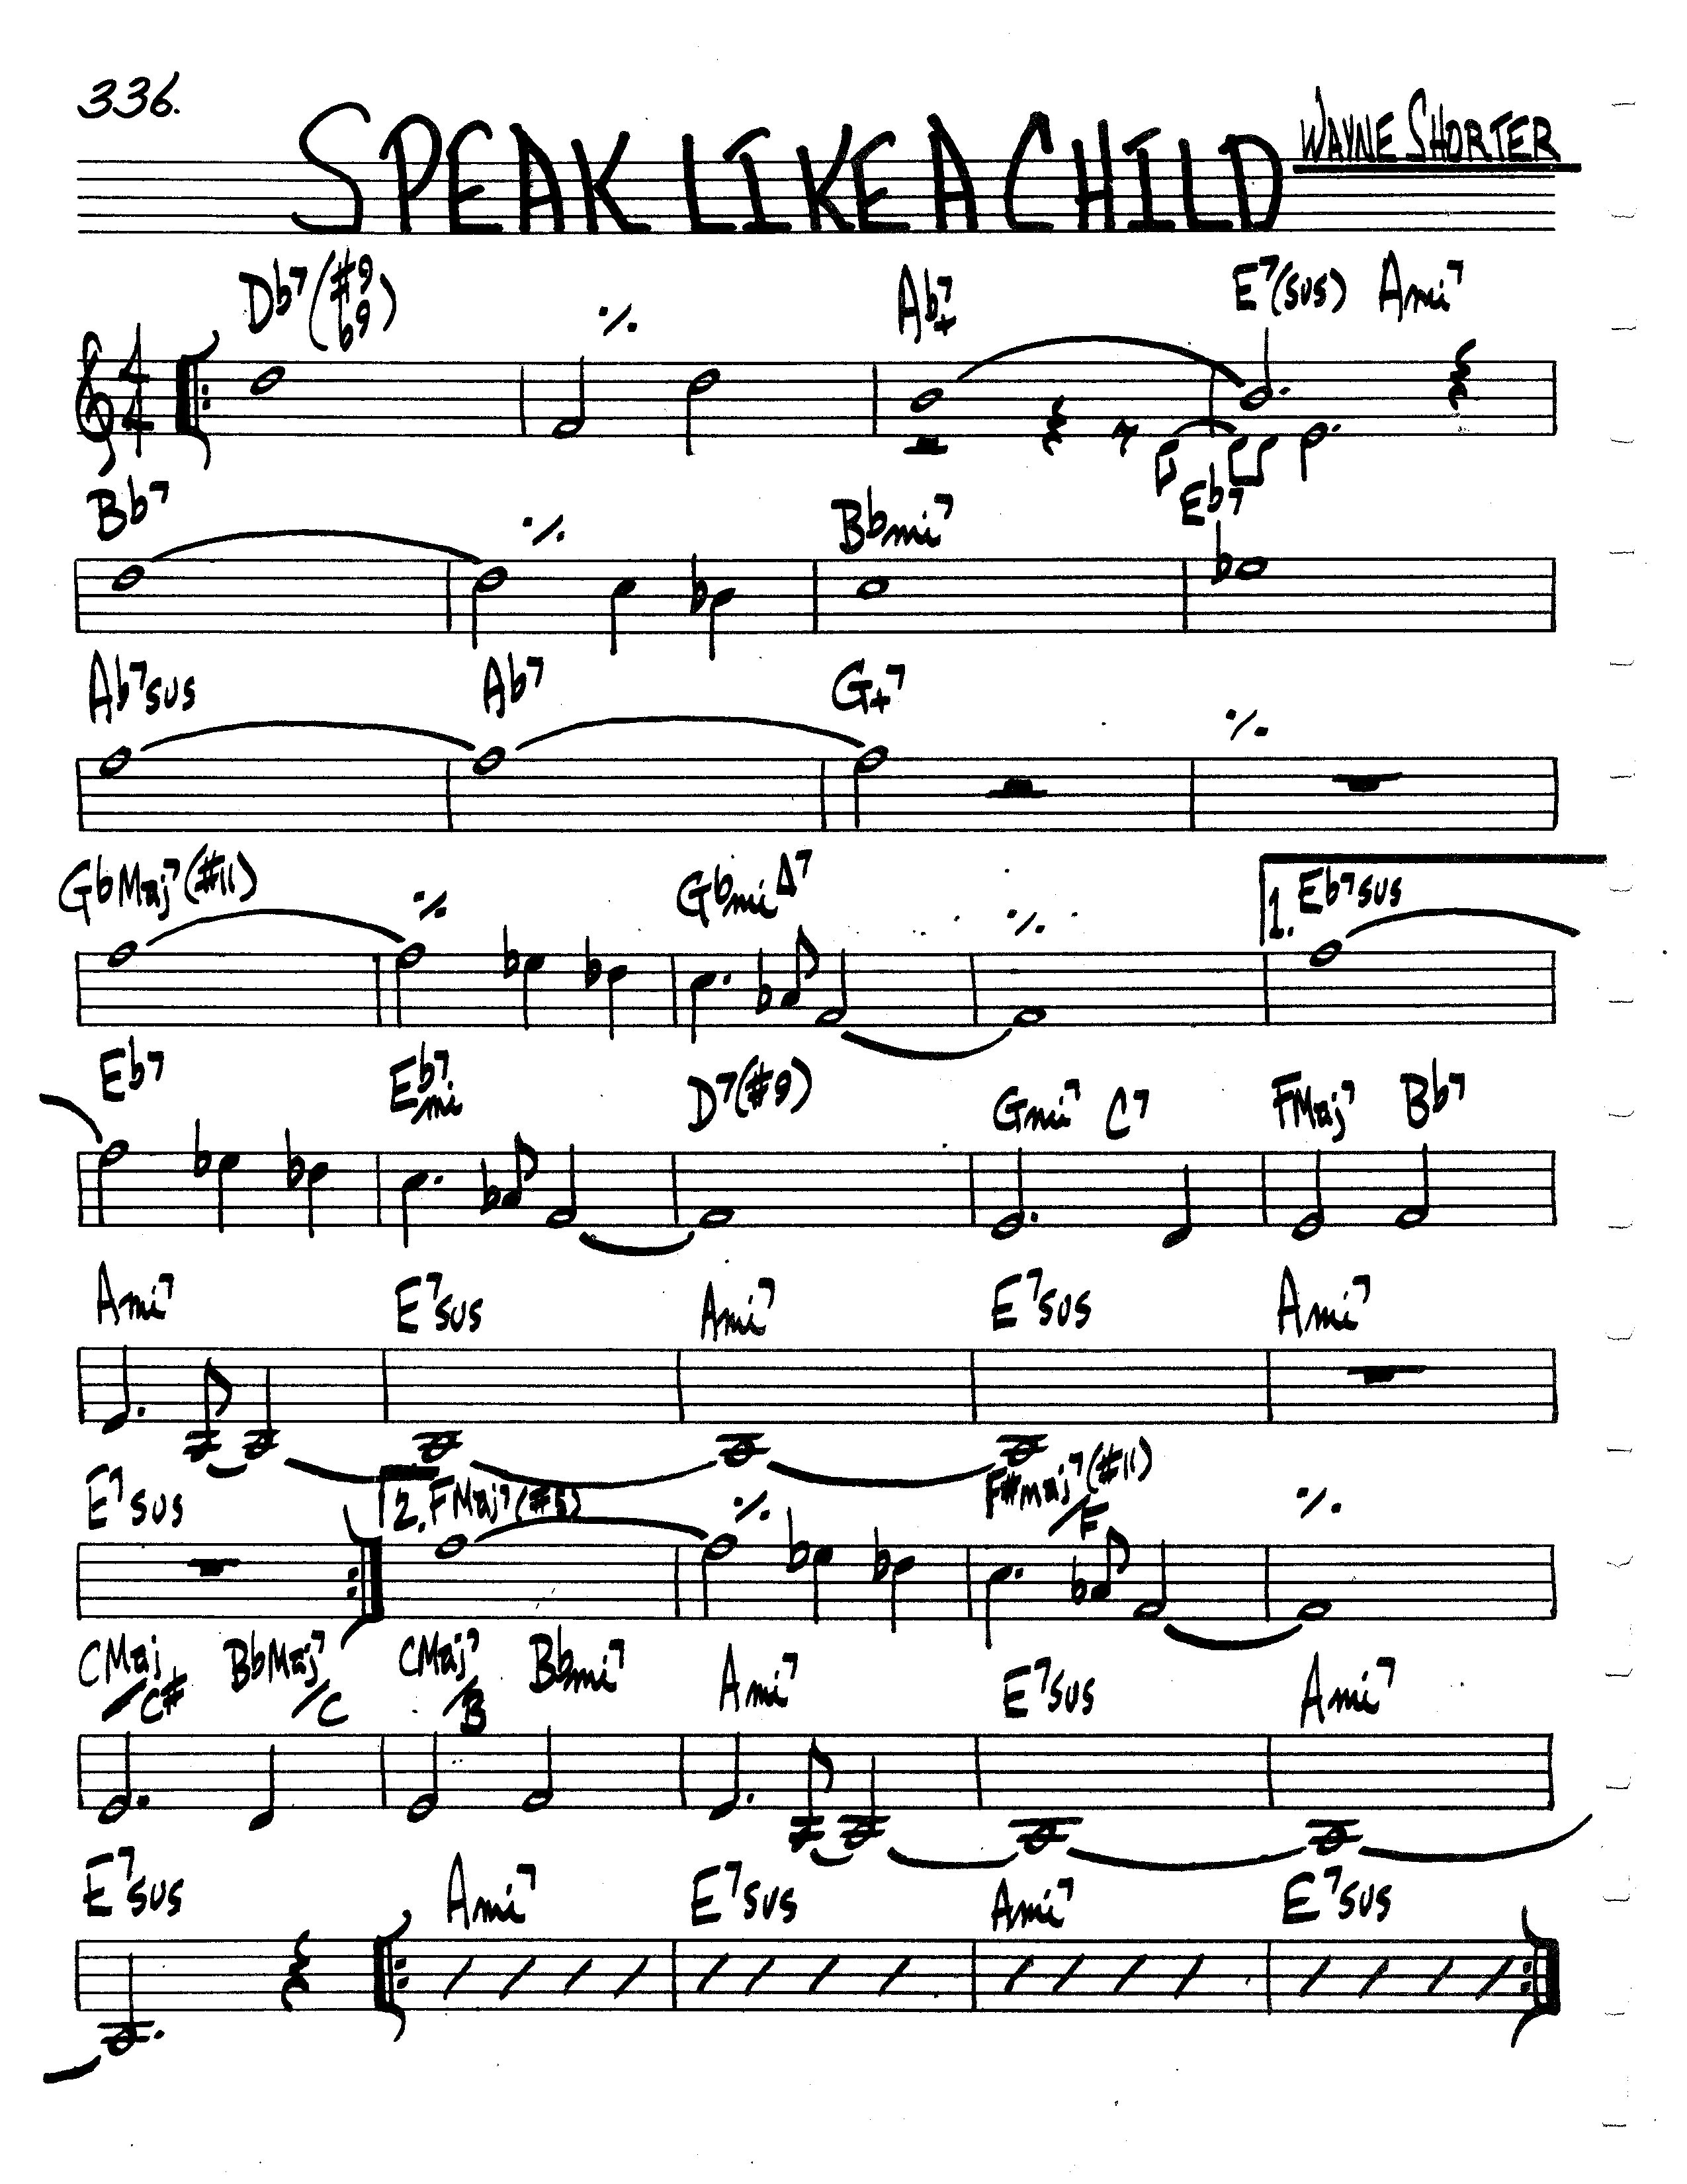 336.
SPEAK LIKE A CHILD WAYNE SHORTER
Db7(#9 b9) ٪ Ab7+ E7(sus) Ami7
4 4
Bb7 ٪ Bbmi7 Eb7
Ab7sus Ab7 G+7 ٪
GbMaj7(#11) ٪ Gbmi Δ7 ٪ 1. Eb7sus
Eb7 Ebmi7 D7(#9) Gmi7 C7 FMaj7 Bb7
Ami7 E7sus Ami7 E7sus Ami7
E7sus 2. FMaj7(#5) ٪ F#maj7(#11)/F ٪
CMaj/C# BbMaj7/C CMaj7/B Bbmi7 Ami7 E7sus Ami7
E7sus Ami7 E7sus Ami7 E7sus